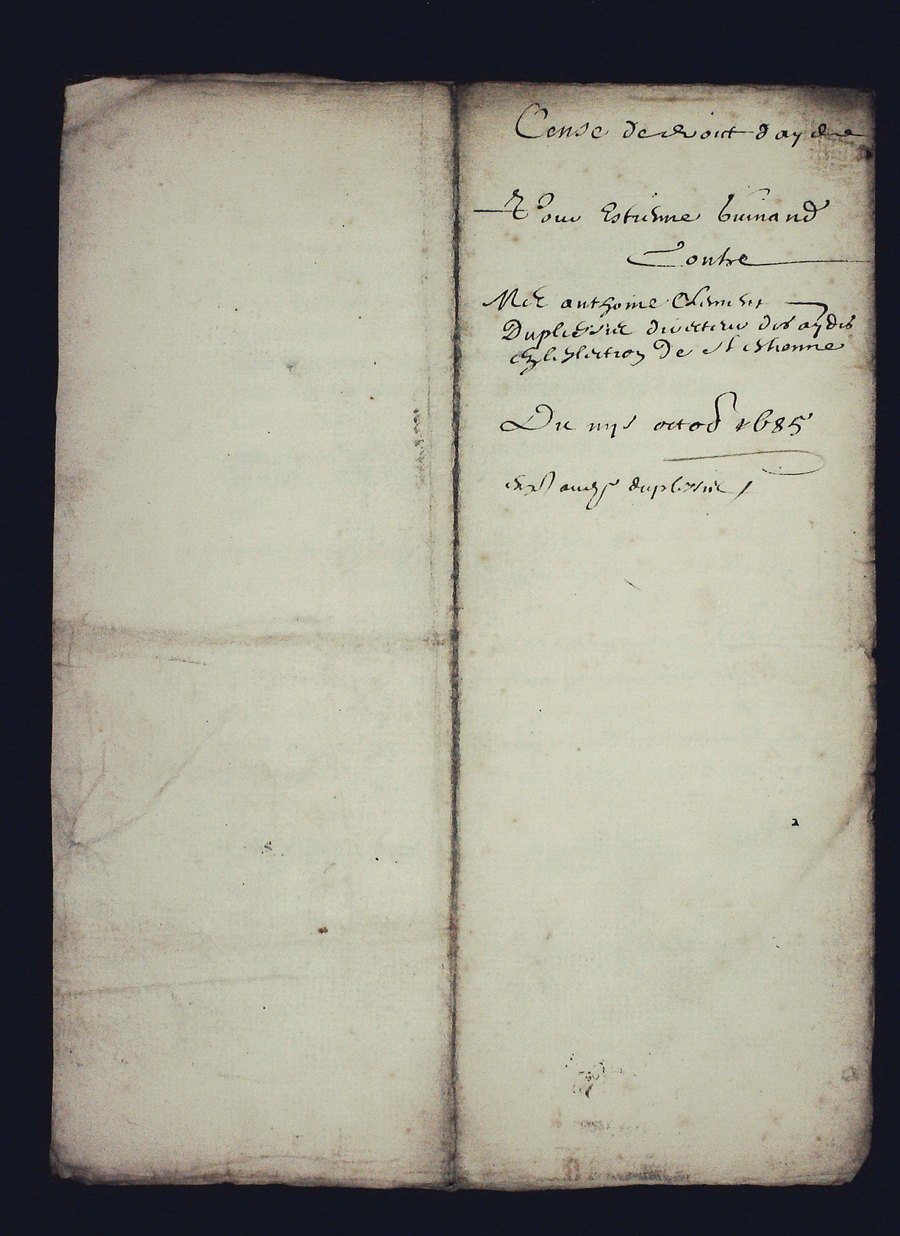 Cense de droict d'aydes
Pour Estienne Guinand
Contre
Me anthoine Clement
Duplessie directeur des aydes
en lelection de st estienne
Du iiije octob 1685
duplessie